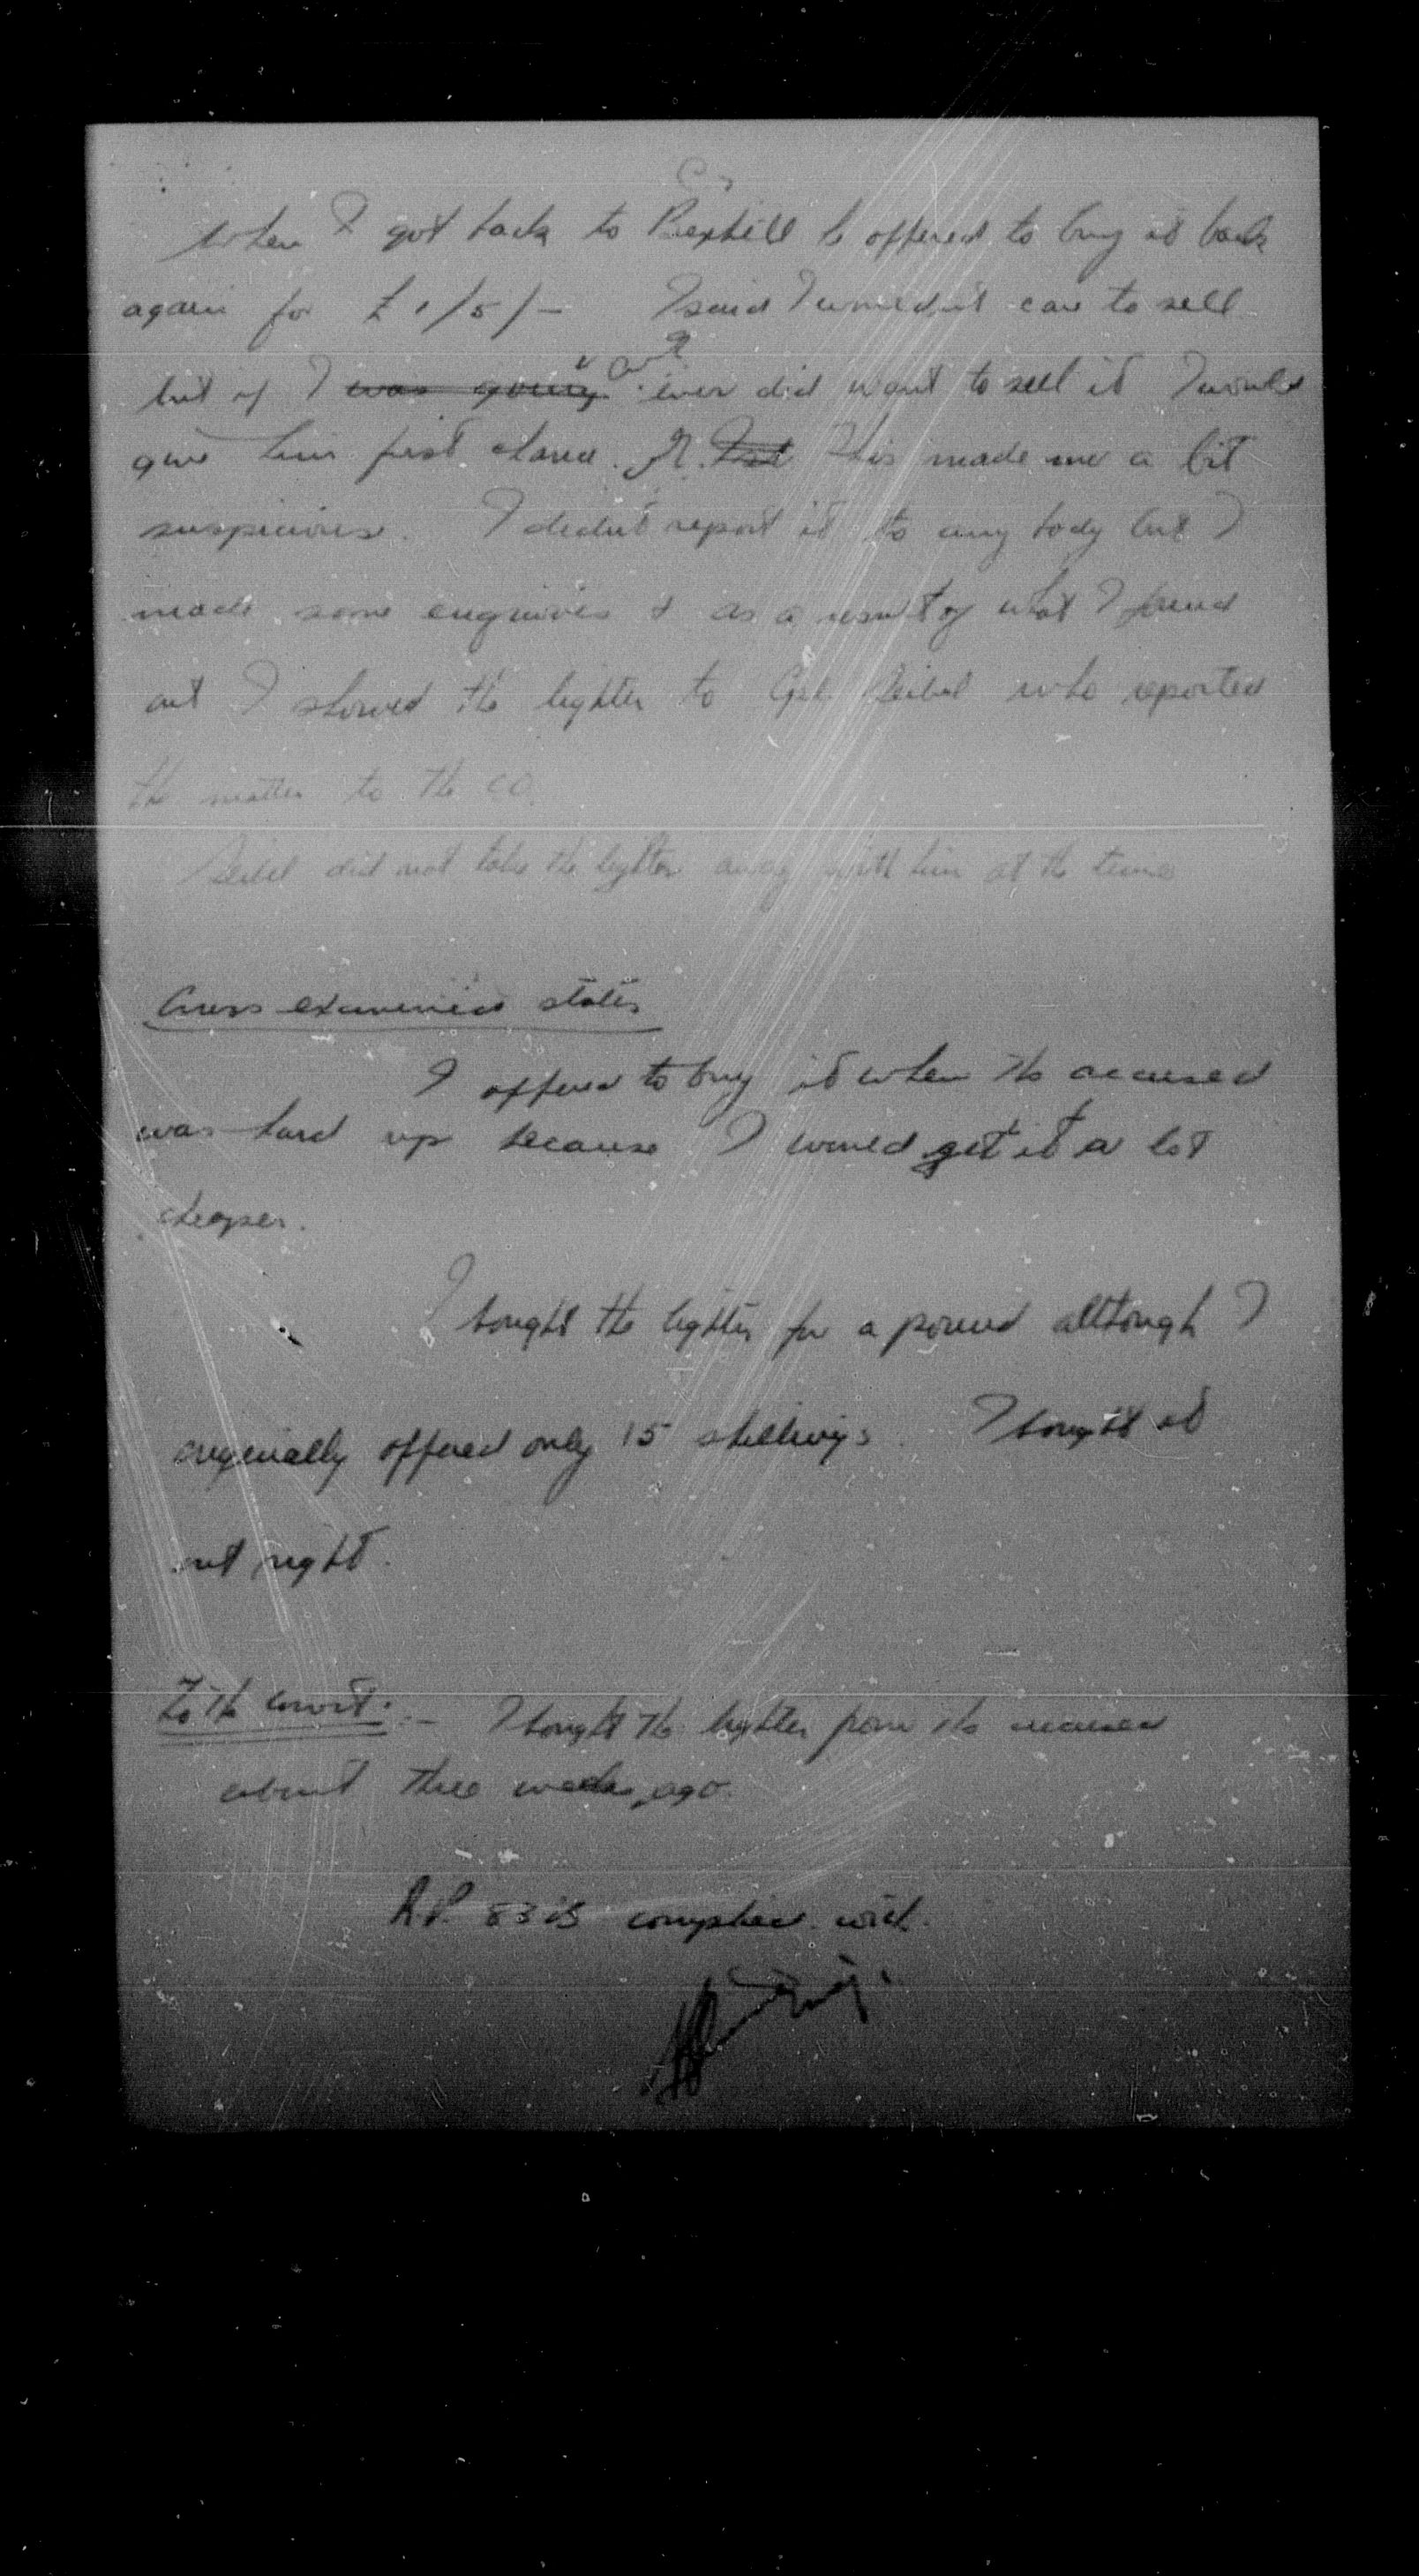 When I got back to Bexhill he offered to buy it back
again for £1/5/- I said I wouldn't care to sell
but if I was going ever did want to sell it I would
give him first chance. This made me a bit
suspicious. I didn't report it to any body but I
made some enquiries & as a result of what I found
out I showed the lighter to Cpl. Seibel who reported
the matter to the CO.
Seibel did not take the lighter away with him at the time
Cross examined states
I offered to buy it when the accused
was hard up because I would get it a lot
cheaper.
I bought the lighter for a pound although I
originally offered only 15 shillings. I bought it
out right.
To the Court:- I bought the lighter from the accused
about three weeks ago.
R.P. 83 is complied with.